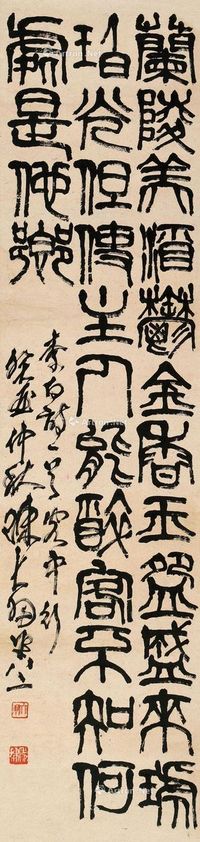 蘭陵美酒鬱金香玉盌盛來琥
珀光但使主人能醉客不知何
處是他鄉
李白詩一首客中行
癸酉仲秋陳大羽年八二